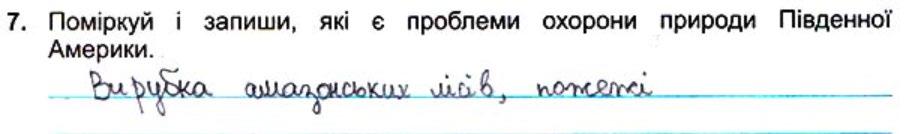 7. Поміркуй і запиши, які є проблеми охорони природи Південної
Америки.
Вирубка амазонських лісів, пожежі